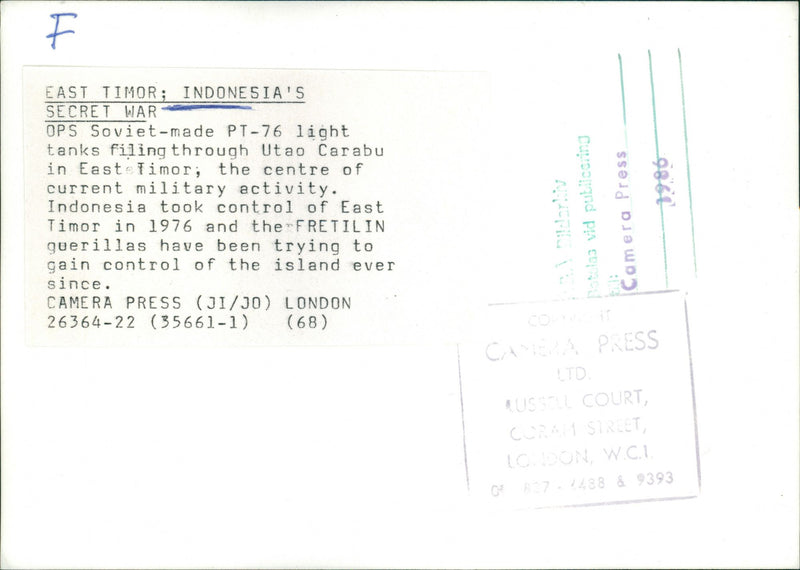 F
EAST TIMOR; INDONESIA'S
SECRET WAR
OPS Soviet-made PT-76 light
tanks filing through Utao Carabu
in East Timor, the centre of
current military activity.
Indonesia took control of East
Timor in 1976 and the FRETILIN
guerillas have been trying to
gain control of the island ever
since.
CAMERA PRESS (JI/JO) LONDON
26364-22 (35661-1) (68)
Bildarkiv
Betalas vid publicering
till:
Camera Press
1986
COPYRIGHT
CAMERA PRESS
LTD.
RUSSELL COURT,
CORAM STREET,
LONDON, W.C.1.
837 - 4488 & 9393